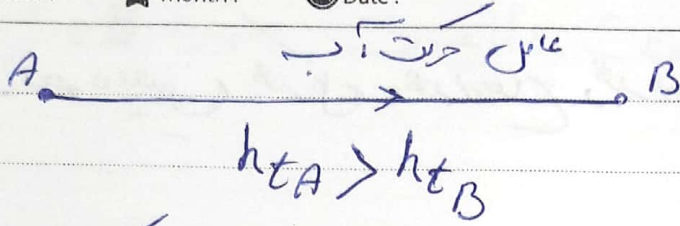 Date:
عامل حرکت آب
A B
h_tA > h_tB